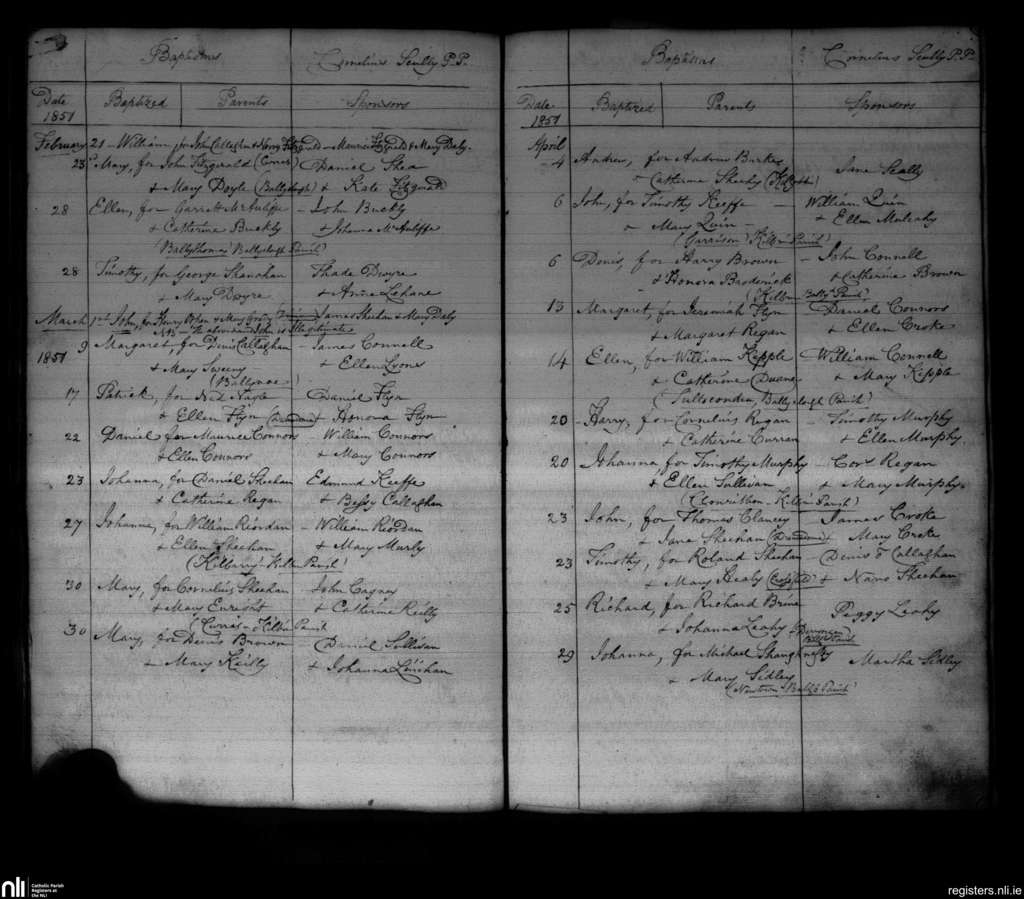 Baptisms
Cornelius Scully P.P.
Date
1851
Baptized
Parents
Sponsors
February 21 - William for John Callaghan & Fitzgerald - Maurice Fitzgerald & Mary Daly.
23rd Mary, for John Fitzgerald Daniel Shea
& Mary Doyle (Ballyclogh) & Kate Fitzgerald
28 Ellen, for Garrett McAuliffe - John Buckly
& Catherine Buckly & Johanna McAuliffe
(Ballythomas Ballyclogh Parish)
28 Timothy, for George Shanahan Thade Dwyre
& Mary Dwyre & Anne Lehane
March 1st John, for Henry & Mary James Sheehan & Mary Daly
N.B. The aforesaid John is Illegitimate
1851
9 Margaret, for Denis Callaghan - James Connell
& Mary Sweeny & Ellen Lyons
17 Patrick, for Ned Nagle Daniel Flyn
& Ellen Flyn - Honora Flyn
22 Daniel for Maurice Connors - William Connors
& Ellen Connors & Mary Connors
23 Johanna, for Daniel Sheehan Edmund Keeffe
& Catherine Regan & Bessy Callaghan
27 Johanna, for William Riordan - William Riordan
& Ellen Sheehan & Mary Murly
(Kilbarry - Parish)
30 Mary, for Cornelius Sheehan John Cagney
& Mary Enright & Catherine Reilly
Parish
30 Mary, for Denis Brown - Daniel Sullivan
& Mary Reilly & Johanna Linehan
Baptisms
Cornelius Scully P.P.
Date
1851
Baptized
Parents
Sponsors
April
4 Andrew, for Andrew Burke Jane Scully
& Catherine Sheehy
6 John, for Timothy Keeffe - William Quin
& Mary Quin - & Ellen Mulcahy
(Garrison Parish)
6 Denis, for Harry Brown - John Connell
& Honora Broderick & Catherine Brown
Parish)
13 Margaret, for Jeremiah Flyn Daniel Connors
& Margaret Regan & Ellen Croke
14 Ellen, for William Kepple William Connell
& Catherine Duane & Mary Kepple
Ballyclogh Parish)
20 Harry, for Cornelius Regan - Timothy Murphy
& Catherine Curran & Ellen Murphy
20 Johanna, for Timothy Murphy - Cors Regan
& Ellen Sullivan & Mary Murphy.
Parish)
23 John, for Thomas Clancy James Croke
& Jane Sheehan Mary Croke
23 Timothy, for Roland Sheehan - Denis O Callaghan
& Mary Healy & Nano Sheehan
25 Richard, for Richard Brine Peggy Leahy
& Johanna Leahy
29 Johanna, for Michael Shaughnessy Martha Sidley
& Mary Sidley
(Newtown Parish)
nli
Catholic Parish
Registers at
the NLI
registers.nli.ie